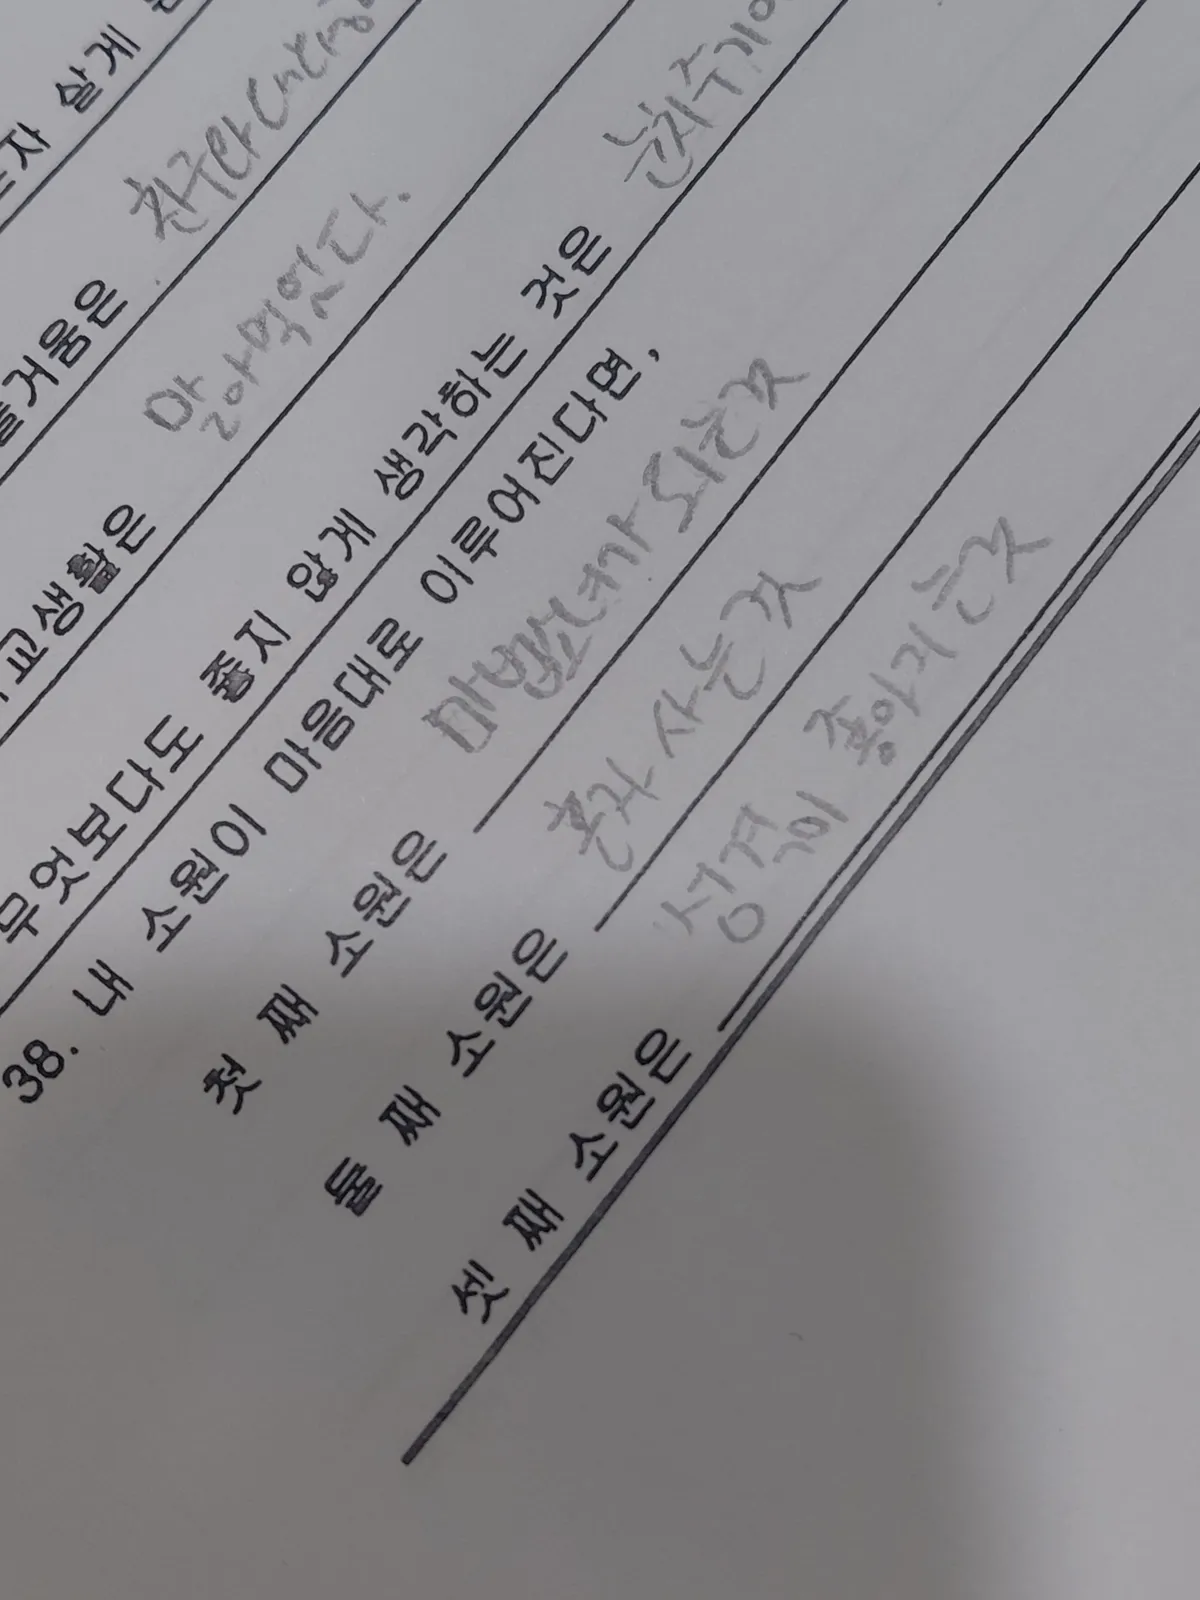 살게
즐거움은 친구랑
교생활은 말아먹었다.
무엇보다도 좋지 않게 생각하는 것은 눈치주기
38. 내 소원이 마음대로 이루어진다면,
첫 째 소원은 마법소녀가 되는것
둘 째 소원은 혼자 사는것
셋 째 소원은 성격이 좋아지는것